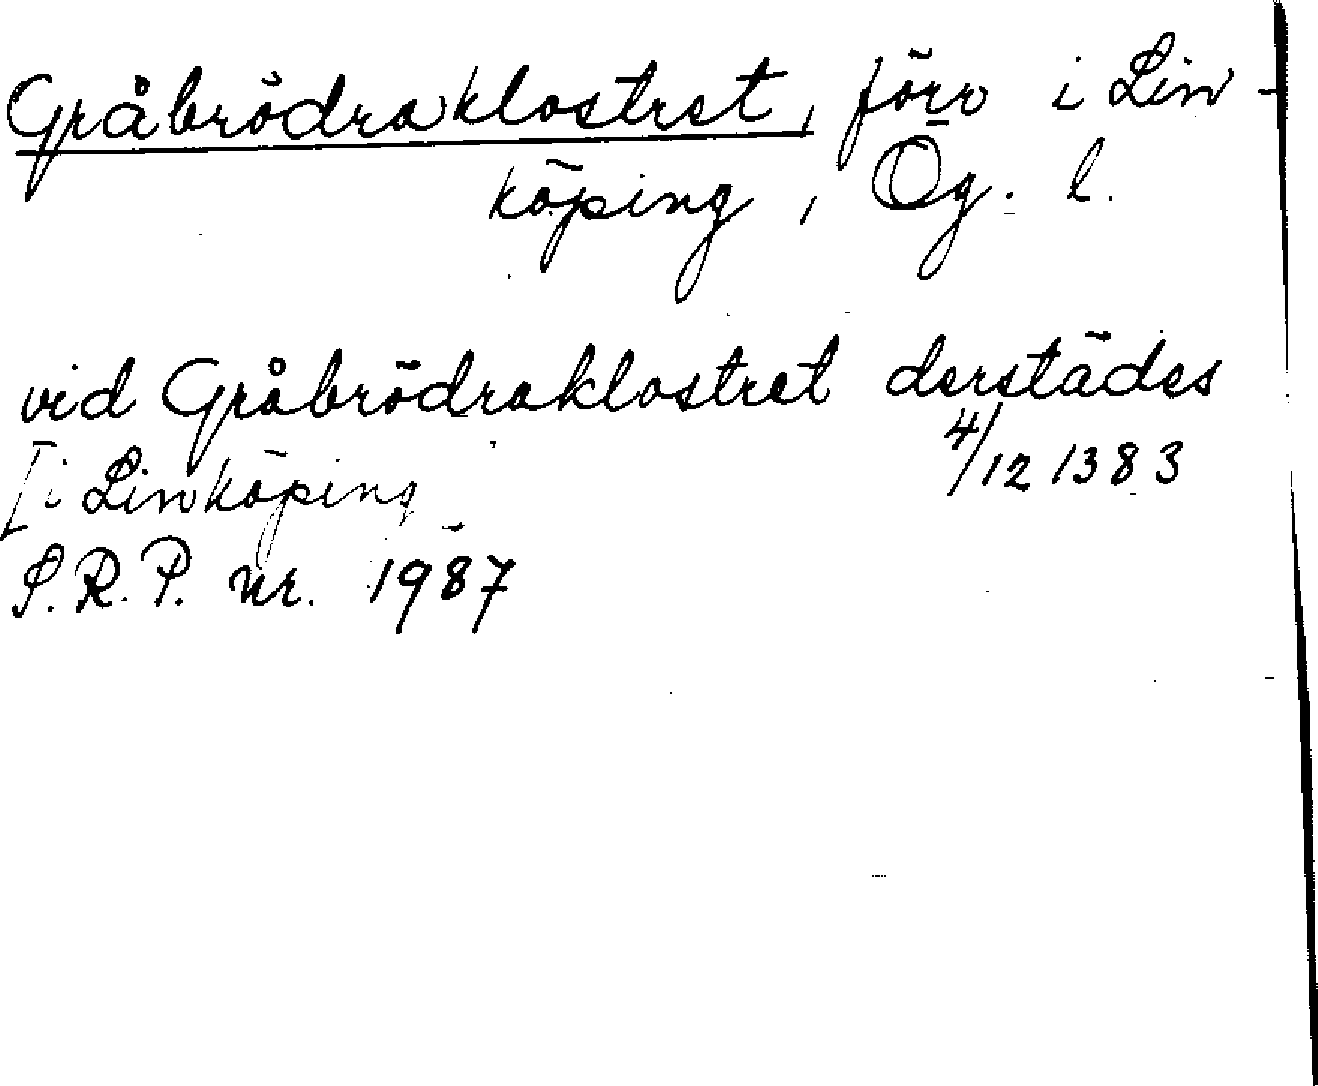 Gråbrödraklostret, förr i Lin-
köping, Ög. l.
vid Gråbrödraklostret derstädes
[i Linköping 4/12 1383
S.R.P. nr. 1987